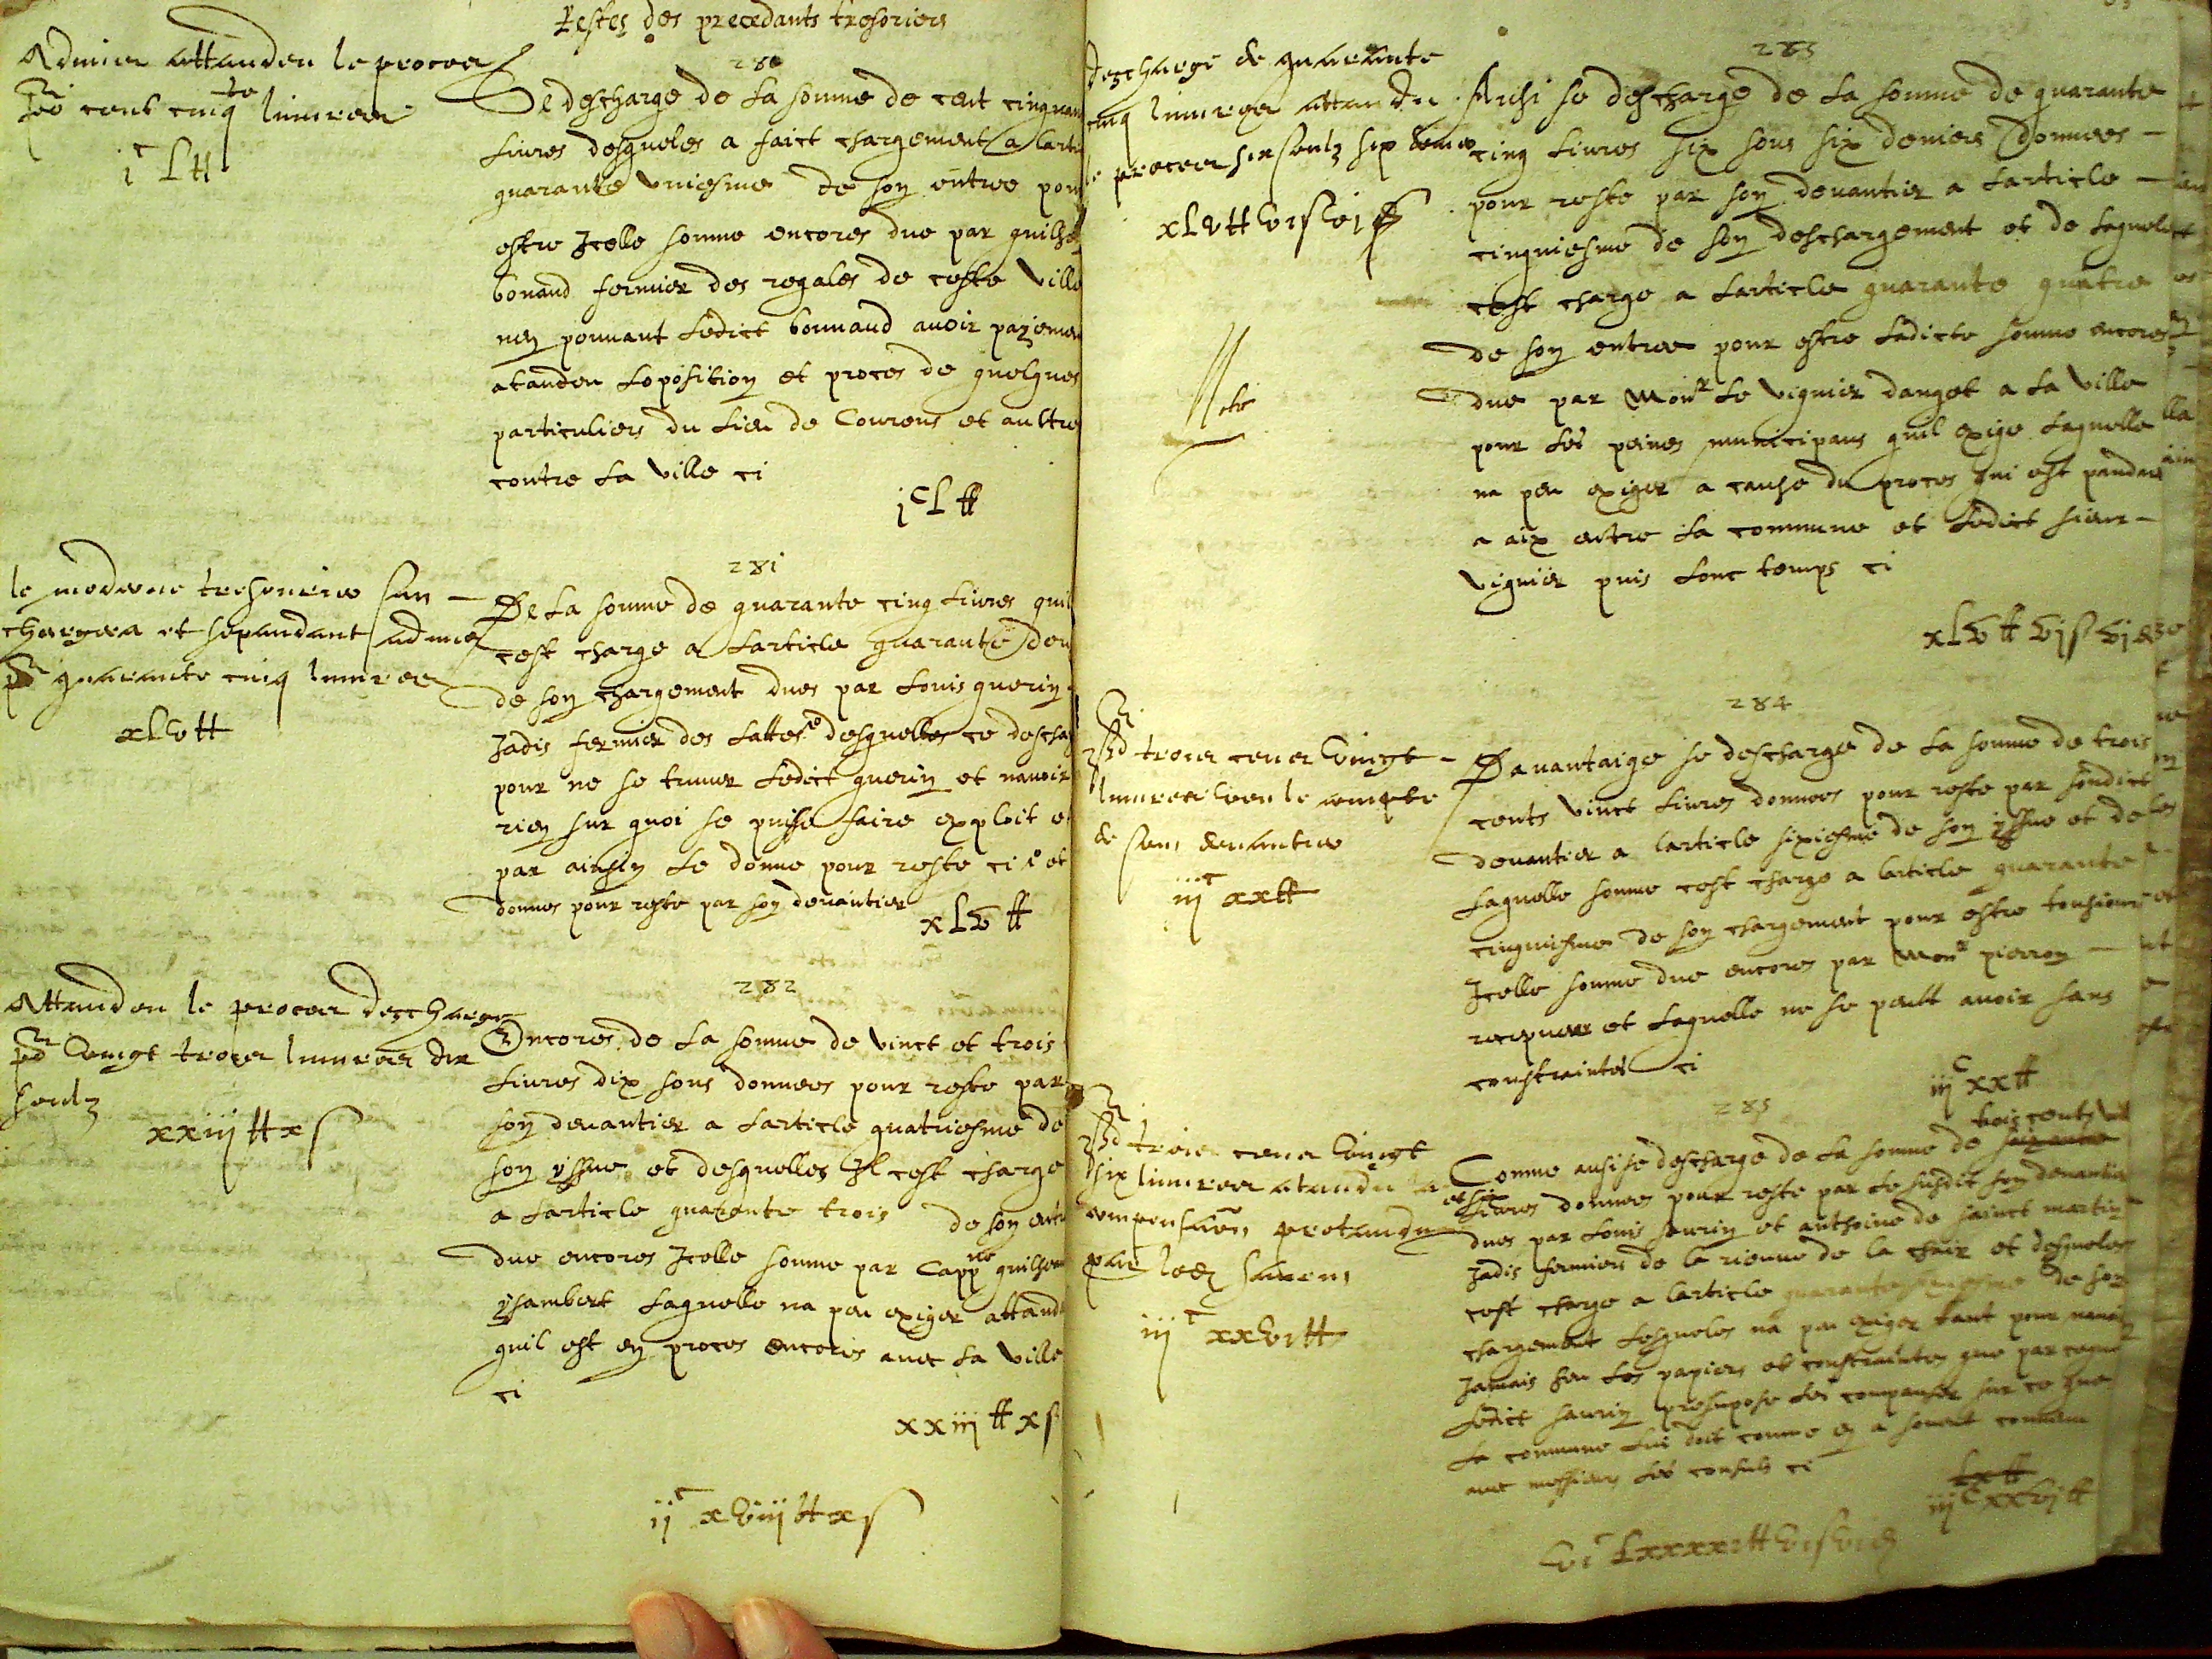 Restes des precedants tresoriers
Admis attanden le proces
po.r cent cinq.te liuvres
i.c L tt
280
Se descharge de la somme de cent cinquan
liures desqueles a faict chargement a larti
quarante vniesme de son entree pour
estre Icelle somme encores due par guilhe
bonaud fermier des regales de ceste ville
nen pouuant ledict bonnaud auoir payemen
atanden loposition et proces de quelques
particuliers du lieu de Courens et aultres
contre la ville ci
i.c L tt
le moderne tresourier sen
chargera et sependant admis
po.r quarante cinq liuvres
xLv tt
281
De la somme de quarante cinq liures quil
cest charge a larticle quarante deu
de son chargement dues par Louis guerin
Jadis fermier des lattes desquelles ce descha
pour ne se truuer ledict guerin et nauoir
rien sur quoi se puisse faire exploit et
par ainsin le donne pour reste ci et
donnes pour reste par son deuantier
xLv tt
Attanden le proces descharge
po.r vingt troies liuvres dix
soulz
xxiij tt x s
282
Encores de la somme de vinct et trois
liures dix sous donnees pour reste par
son deuantier a larticle quatriesme de
son yssue et desquelles Il cest charge
a larticle quarante trois de son entr
due encores Icelle somme par Capp.ne guilhem
ysambert laquelle na peu exiger attandu
quil est en proces encores auec la ville
ci
xxiij tt x s
ij.c xviij tt x s
descharge de quarante
cinq liuvres attandu
le proces six soulz six deniers
xLv tt vi s vi d
283
Aussi se descharge de la somme de quarante
cinq liures six sous six deniers donnees
pour reste par son deuantier a larticle
cinquiesme de son deschargement et de laquele
cest charge a larticle quarante quatre
de son entree pour estre ladicte somme encores
due par Mons.r le viguier danget a la ville
pour les peines municipaus quil exige laquelle
na peu exiger a cause du proces qui est pandant
a aix entre la commune et ledict sieur
viguier puis lonc temps ci
xLv tt vj s vj d
troies cens vingt
liuvres veu le compte
de son deuantier
iij.c xx tt
284
Dauantaige se descharge de la somme de trois
cents vinct liures donnees pour reste par sondict
deuantier a larticle sixiesme de son yssue et de
laquelle somme cest charge a larticle quarante
cinquiesme de son chargement pour estre tousiours
Icelle somme due encores par Mons.r pierron
et laquelle ne se peult auoir sans
constraintes ci
iij.c xx tt
troies cens vingt
six liuvres atandu la
compensa͠on pretandue
par led. saurin
iij.c xxvi tt
285
trois cents vint
Comme aussi se descharge de la somme de soixante
et six liures donnees pour reste par le susdit son deuantier
dues par Louis saurin et anthoine de sainct martin
Jadis fermiers de la rieuue de la chair et desqueles
cest charge a larticle quarante de son
chargement lesqueles na peu exiger tant pour nauoir
Jamais heu les papiers et constraintes que par ce que
ledict saurin presupose les compenser sur ce que
la commune lui doit comme en a souent
auec messieurs les consuls ci
Lx tt
iij.c xxvj tt
vi.c Lxxxxi tt vi s vi d